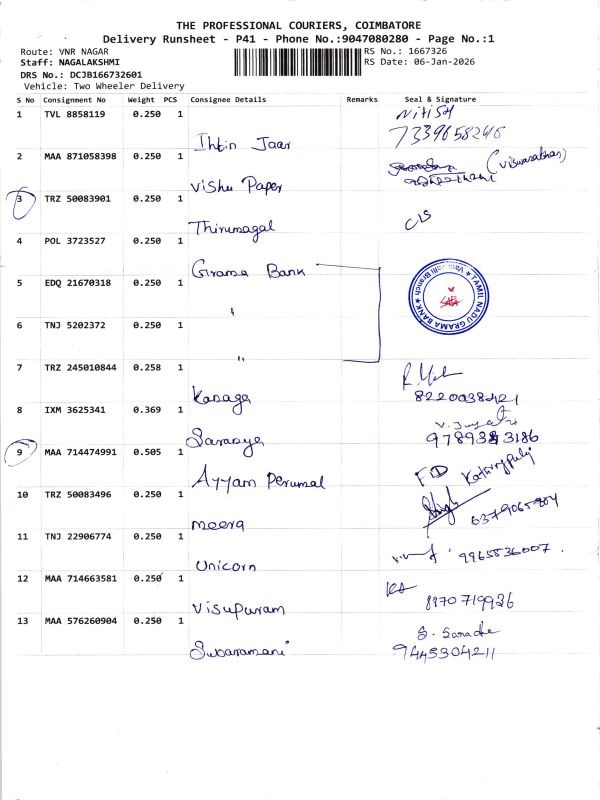 THE PROFESSIONAL COURIERS, COIMBATORE
Delivery Runsheet - P41 - Phone No.:9047080280 - Page No.:1
Route: VNR NAGAR
RS No.: 1667326
Staff: NAGALAKSHMI
RS Date: 06-Jan-2026
DRS No.: DCJB166732601
Vehicle: Two Wheeler Delivery
S No Consignment No Weight PCS Consignee Details Remarks Seal & Signature
1 TVL 8858119 0.250 1 Nitish
Ihtin Jaar 7339658246
2 MAA 871058398 0.250 1 (Viswanathan)
Vishu Paper
3 TRZ 50083901 0.250 1
Thirumagal
4 POL 3723527 0.250 1
Grama Bank
5 EDQ 21670318 0.250 1
"
TAMIL NADU GRAMA BANK
6 TNJ 5202372 0.250 1
"
7 TRZ 245010844 0.258 1
Kasaga 8220038421
8 IXM 3625341 0.369 1
Sarasya
9 MAA 714474991 0.505 1
Ayyam Perumal
10 TRZ 50083496 0.250 1
meera 6379065904
11 TNJ 22906774 0.250 1
Unicorn 9965536007.
12 MAA 714663581 0.250 1
Visupuram 8970719926
13 MAA 576260904 0.250 1
Subaramani 9445304211